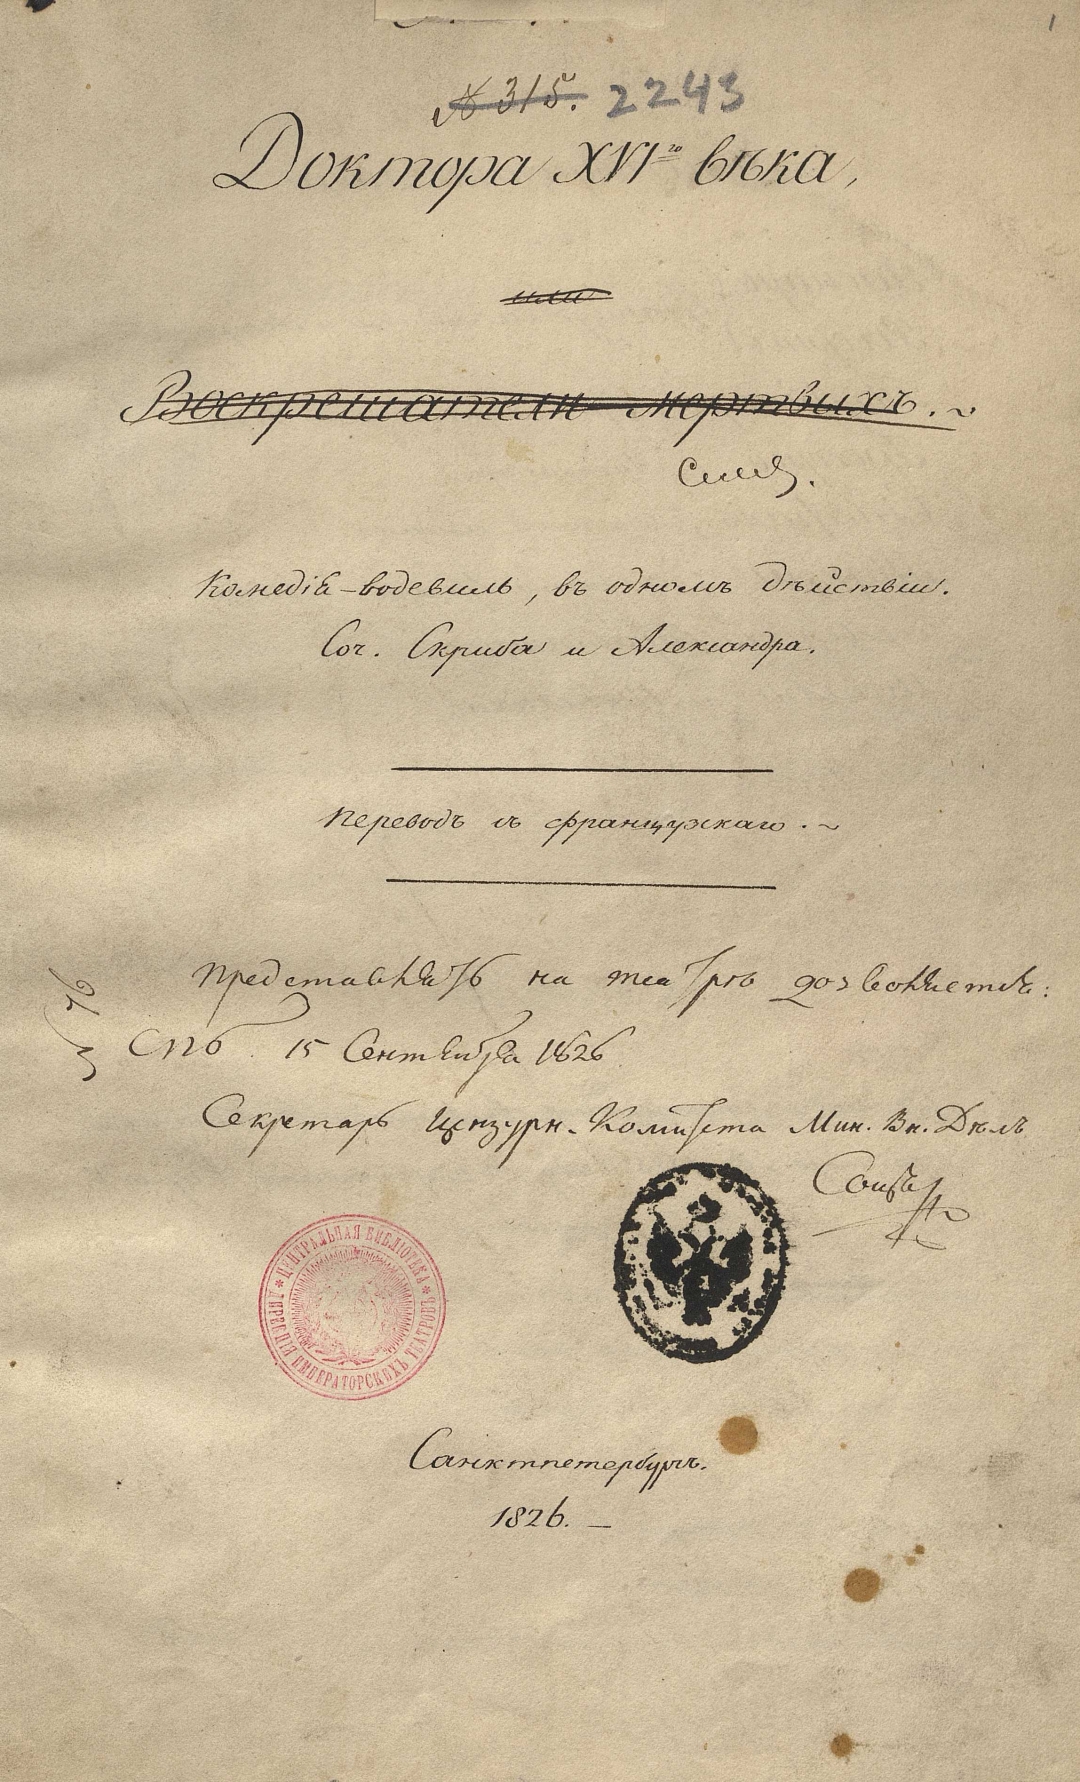 1
№ 315. 2243
Доктора XVIго вѣка,
или
Воскрешатели мертвыхъ.
Комедія-водевиль, въ одномъ дѣйствіи.
Соч. Скриба и Александра.
Переводъ съ французскаго.
Представлять на театрѣ дозволяется:
СПб. 15 Сентября 1826
Секретарь Цензурн. Комитета Мин. Вн. Дѣлъ
ЦЕНТРАЛЬНАЯ БИБЛІОТЕКА * ДИРЕКЦІЯ ИМПЕРАТОРСКИХЪ ТЕАТРОВЪ *
Санктпетербургъ.
1826.